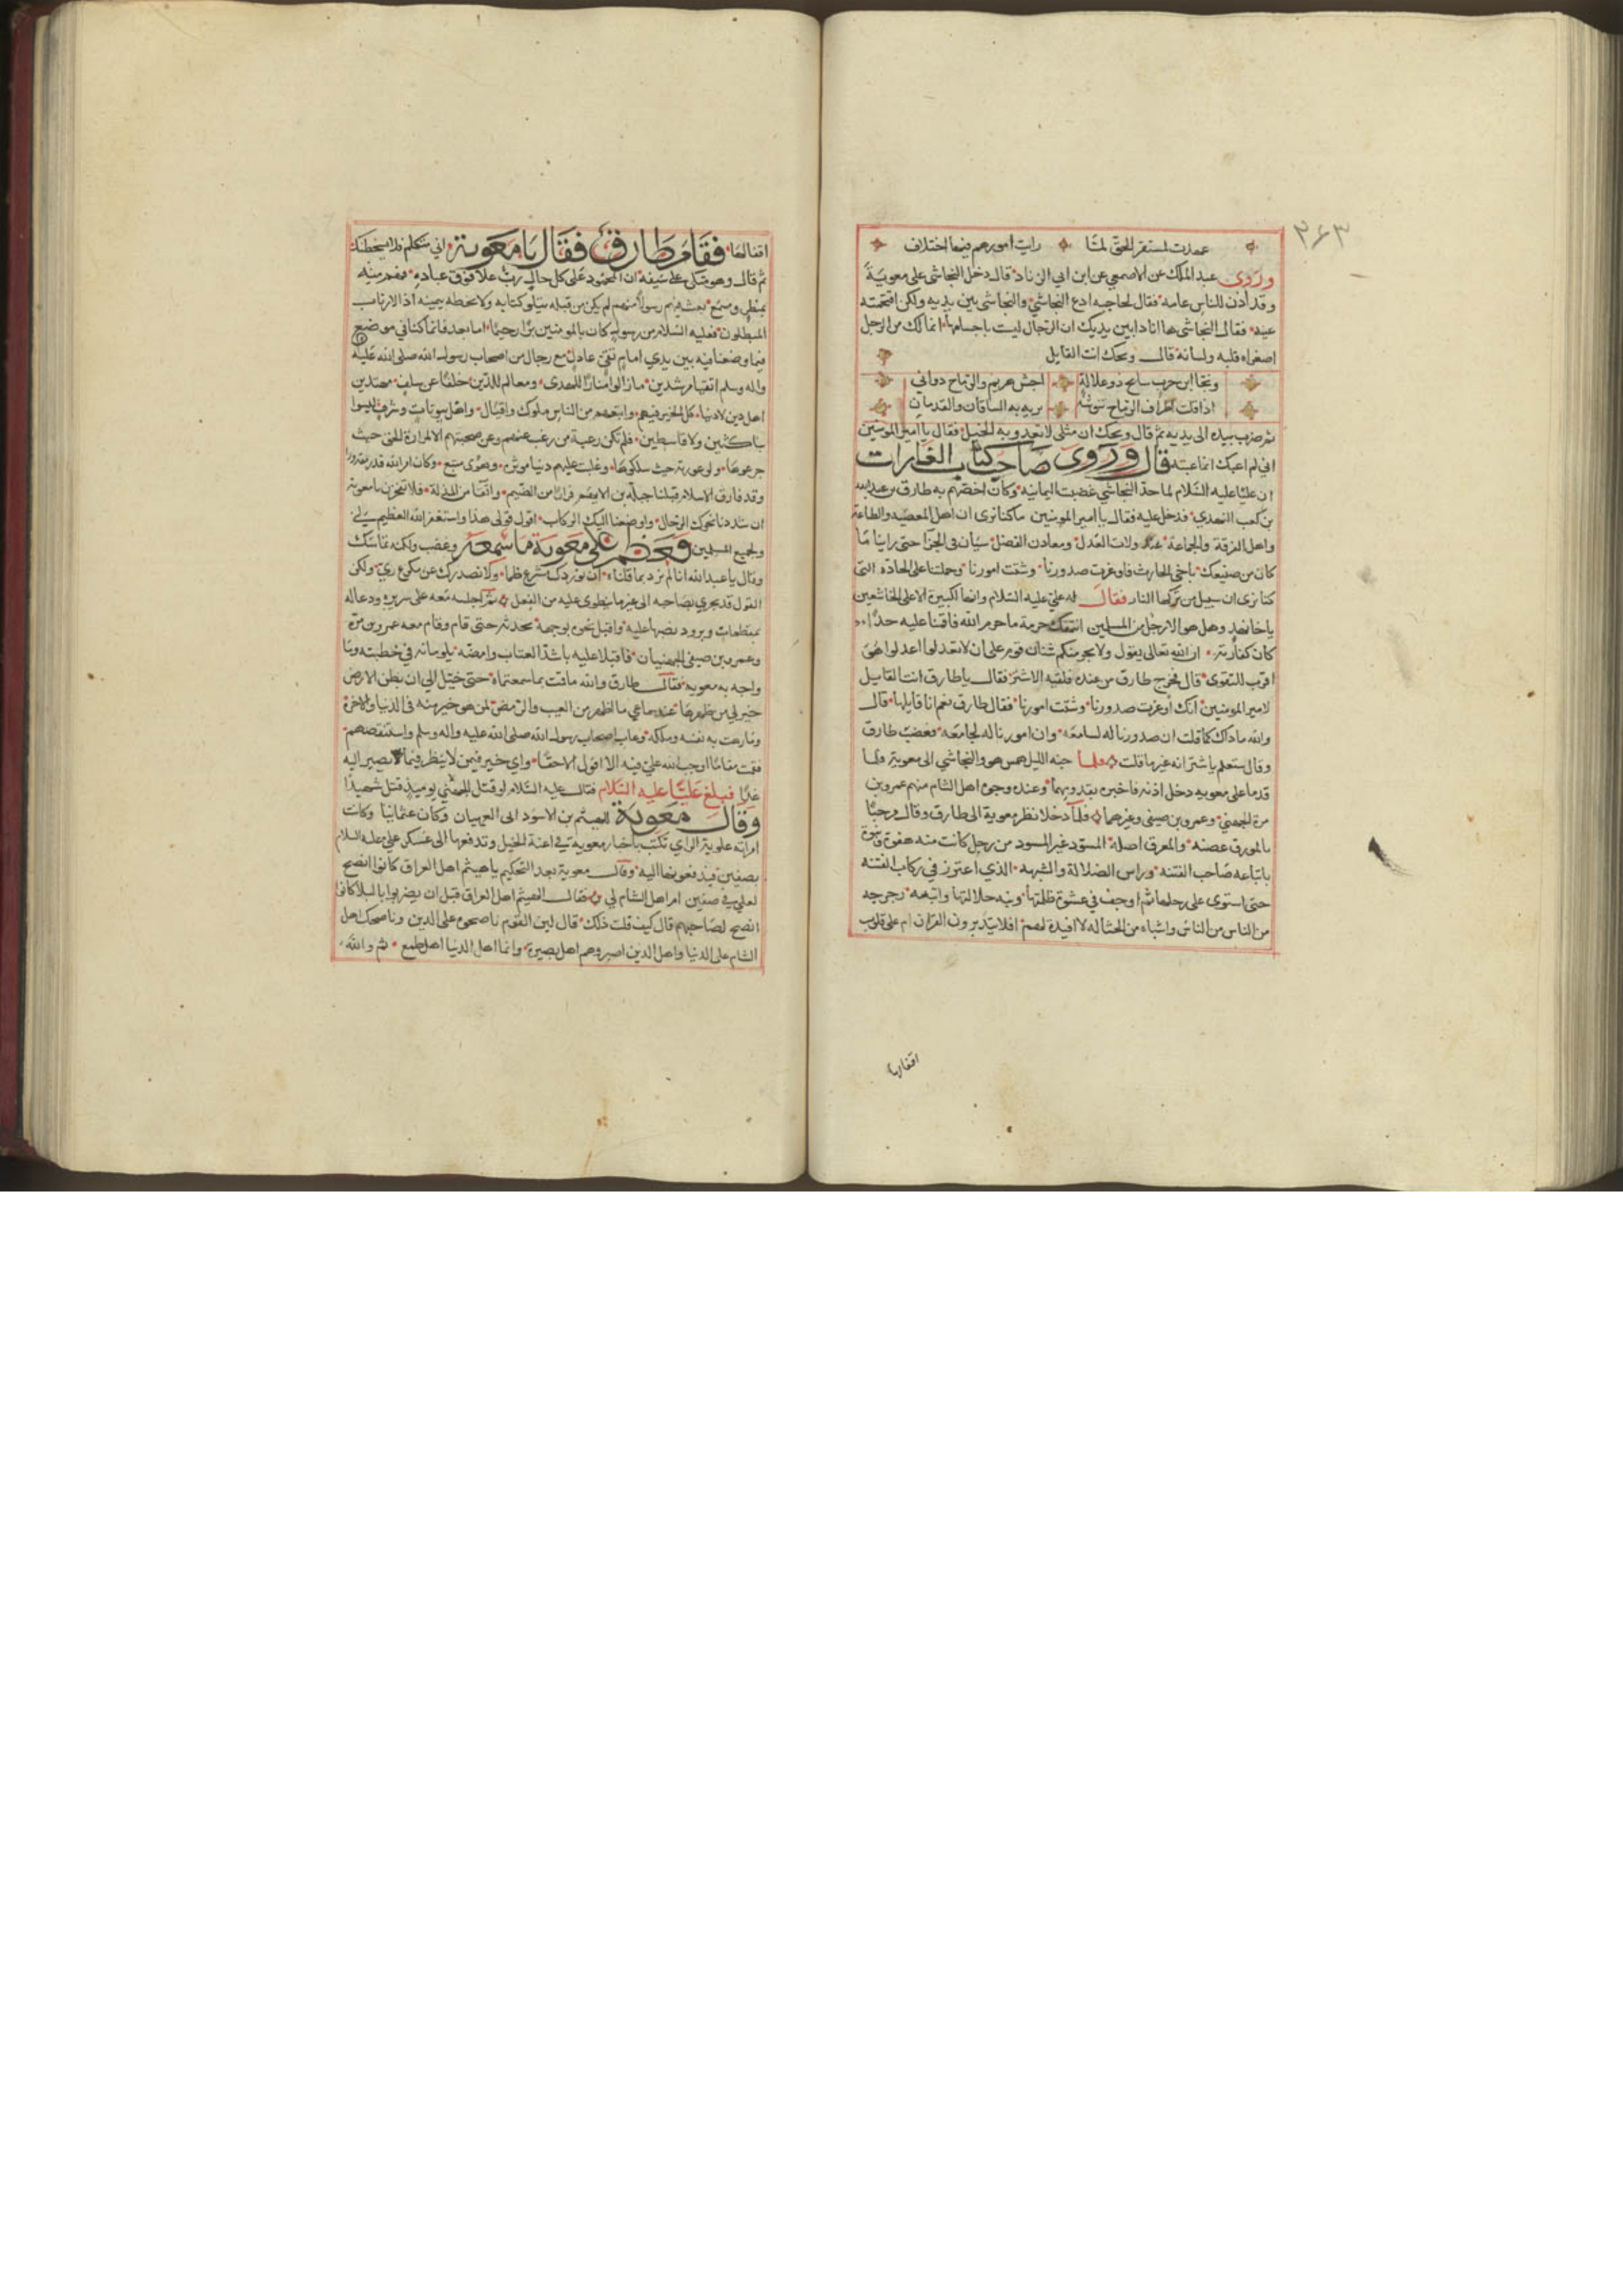 ٢٦٣
عمدت لمستقر الحق لمّا رايت امورهم فيها اختلاف
وروى عبد الملك عن الاصمعي عن ابن ابي الزناد قال دخل النجاشي على معوية
وقد أذن للناس عامه فقال لحاجبه ادع النجاشي والنجاشي بين يديه ولكن اقتحمته
عينه فقال النجاشي ها انا ذا بين يديك ان الرجال ليست باجسامها انما لك من الرجل
اصغراه قلبه ولسانه قال ويحك انت القايل
ونجّا ابن حرب سابح ذو علالة اجش هزيم والرماح دواني
اذا قلت اطراف الرماح تنوشه مرته به الساقان والقدمان
ثم ضرب بيده الى يديه ثم قال ويحك ان مثلى لا تعدو به الخيل فقال يا امير المومنين
اني لم اعنك انما عنيت قال وروى صاحب كتاب الغارات
ان عليا عليه السّلام لما حدّ النجاشي غضبت اليمانيه وكان اخصّهم به طارق بن عبد الله
بن كعب النهدي فدخل عليه فقال يا امير المومنين ماكنا نرى ان اهل المعصيه والطاعة
واهل الفرقة والجماعة عند ولات العدل ومعادن الفضل سيّان في الجزا حتى راينا ما
كان من صنيعك باخي الحارث فاوغرت صدورنا وشتت امورنا وحملتنا على الجادّه التى
كنا نرى ان سبيل من ركبها النار فقال له علي عليه السّلام وانها لكبيرة الا على الخاشعين
يا اخا نهد وهل هو الا رجل من المسلمين انتهك حرمة ما حرم الله فاقمنا عليه حدّا
كان كفارته ان الله تعالى يقول ولا يجرمنكم شنان قوم على ان لا تعدلوا اعدلوا هو
اقرب للتقوى قال فخرج طارق من عنده فلقيه الاشتر فقال ياطارق انت القايل
لامير المومنين انك أوغرت صدورنا وشتت امورنا فقال طارق نعم انا قايلها قال
والله ما ذاك كما قلت ان صدورنا له لسامعه وان امورنا له لجامعه فغضب طارق
وقال ستعلم يا اشتر انه غير ما قلت فلما جنه الليل همس هو والنجاشي الى معوية فلما
قدما على معوية دخل اذنه فاخبره بقدومهما وعنده وجوه اهل الشام منهم عمرو بن
مرة الجهني وعمرو بن صيفي وغيرهما فلمّا دخلا نظر معوية الى طارق وقال مرحبًا
بالمورق غصنه والمعرق اصله المسوّد غير المسود من رجل كانت منه هفوة ونبوة
باتباعه صاحب الفتنه وراس الضلالة والشبهه الذي اغترز في ركاب الفتنه
حتى استوى على رحلها ثم اوجف في عشوة ظلمتها وتيه ضلالتها واتبعه رجرجة
من الناس واشباه من الحثالة لا افيدة لهم افلا يتدبرون القران ام على قلوب
اقفالها
اقفالها فقام طارق فقال يا معوية اني متكلم فلا يسخطك
ثم قال وهو متكي على سيفه ان المحمود على كل حال ربّ علا فوق عباده فهم منه
بمنظر ومسمع بعث فيهم رسولا منهم لم يكن من قبله يتلو كتابه ولا يخطه بيمينه اذا لارتاب
المبطلون فعليه السّلام من رسول كان بالمومنين برّا رحيمًا اما بعد فانما كنا في موضع
فيما وضعنا فيه بين يدي امام تقي عادل مع رجال من اصحاب رسول الله صلى الله عليه
واله وسلم اتقياء مرشدين ما زالوا منارًا للهدى ومعالم للدّين خلفًا عن سلف مهتدين
اهل دين لا دنيا كل الخير فيهم واتبعهم من الناس ملوك واقيال واهل بيوتات وشرف ليسوا
بناكثين ولا قاسطين فلم تكن رغبة من رغب عنهم وعن صحبتهم الا لمرارة الحق حيث
جرعوها ولوعورته حيث سلكوها وغلبت عليهم دنيا موثره وهوى متبع وكان امر الله قدرا مقدورا
وقد فارق الاسلام قبلنا جبلة بن الايهم فرارًا من الضّيم وانفا من الذلة فلا تفخرن يا معوية
ان شددنا نحوك الرحال واوضعنا اليك الركاب اقول قولي هذا واستغفر الله العظيم لي
ولجميع المسلمين فعظم على معوية ما سمعه وغضب ولكنه تماسك
وقال يا عبد الله انا لم نرد بما قلناه ان نوردك مشرع ظما ولا نصدرك عن مكرع ريّ ولكن
القول قد يجري بصاحبه الى غير ما ينطوى عليه من الفعل ثم اجلسه معه على سريره ودعا له
بمقطعات وبرود يضبها عليه واقبل نحوه بوجهه يحدثه حتى قام وقام معه عمرو بن مرة
وعمرو بن صيفي الجهنيان فاقبلا عليه باشدّ العتاب وامضّه يلومانه في خطبته وما
واجه به معويه فقال طارق والله ما قمت بما سمعتماه حتى خيّل الي ان بطن الارض
خير لي من ظهرها عند سماعي ما اظهر من العيب والنقص لمن هو خير منه في الدنيا والاخرة
وما زهت به نفسه وملكه وعاب اصحاب رسول الله صلى الله عليه واله وسلم واستنقصهم
فقمت مقامًا اوجب الله علي فيه الا اقول الا حقًا واي خير فيمن لا ينظر فيما يصير اليه
غدًا فبلغ عليًّا عليه السّلام فقال عليه السّلام لو قتل الجهني يوميذ قتل شهيدًا
وقال معوية للهيثم بن الاسود ابي العريان وكان عثمانيا وكانت
امراته علوية الراي تكتب باخبار معويه في اعنة الخيل وتدفعها الى عسكر علي عليه السلام
بصفين فيدفعونها اليه وقال معوية بعد التحكيم يا هيثم اهل العراق كانوا انصح
لعلي في صفين ام اهل الشام لي فقال الهيثم اهل العراق قبل ان يضربوا بالبلا كانوا
انصح لصاحبهم قال كيف قلت ذلك قال لان القوم ناصحوه على الدين وناصحك اهل
الشام على الدنيا واهل الدين اصبر وهم اهل بصيرة وانما اهل الدنيا اهل طمع ثم والله